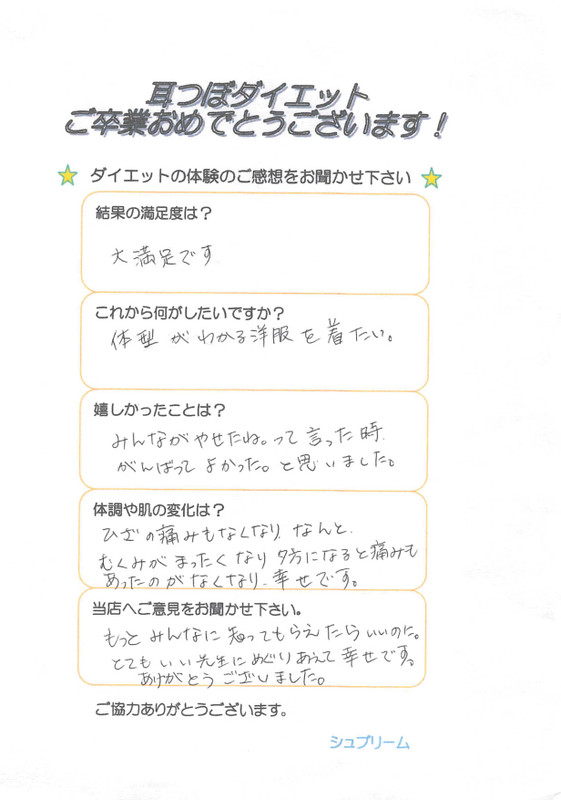 耳つぼダイエット
ご卒業おめでとうございます!
ダイエットの体験のご感想をお聞かせ下さい
結果の満足度は?
大満足です
これから何がしたいですか?
体型がわかる洋服を着たい。
嬉しかったことは?
みんながやせたね。って言った時
がんばってよかった。と思いました。
体調や肌の変化は?
ひざの痛みもなくなり、なんと、
むくみがまったくなり夕方になると痛みも
あったのがなくなり、幸せです。
当店へご意見をお聞かせ下さい。
もっとみんなに知ってもらえたらいいのに。
とてもいい先生にめぐりあえて幸せです。
ありがとうございました。
ご協力ありがとうございます。
シュプリーム